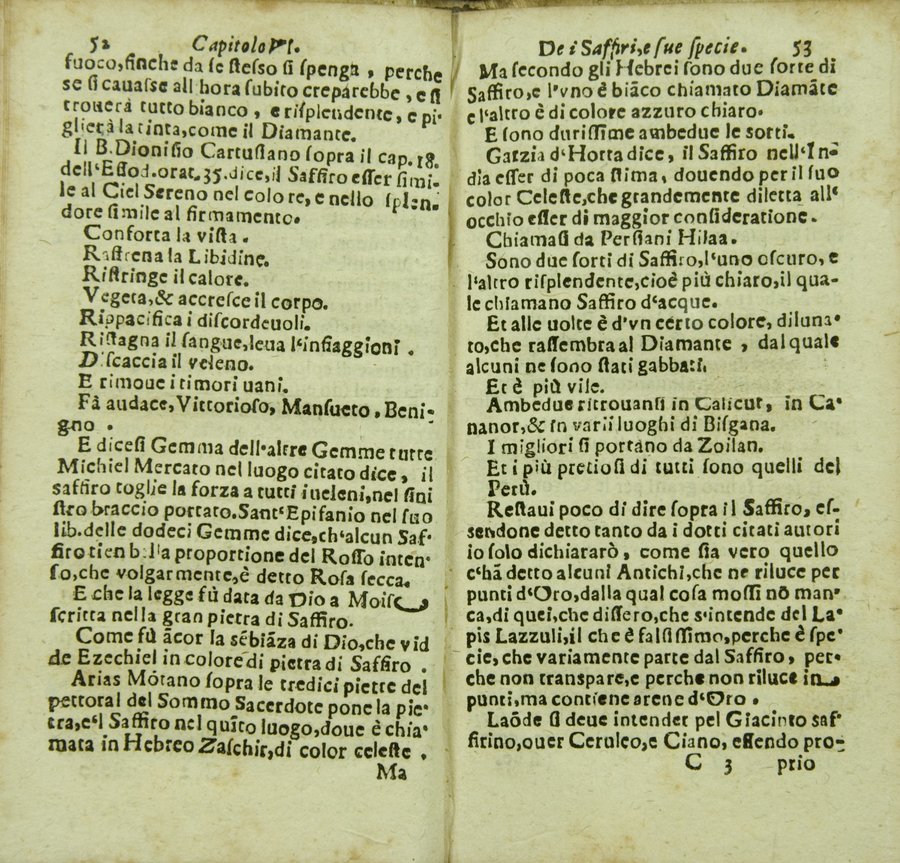 52 Capitolo VI.
fuoco,finche da ſe ſteſſo ſi ſpenga , perche
se ſi cauaſse all hora ſubito creparebbe , e ſi
trouerà tutto bianco , e riſplendente, e pi-
glierà la tinta,come il Diamante.
Il B.Dioniſio Cartuſiano ſopra il cap.18.
dell'Eſſod.orat.35.dice,il Saffiro eſſer ſimi-
le al Ciel Sereno nel colore, e nello ſplen-
dore ſimile al firmamento.
Conforta la viſta .
Raffrena la Libidine.
Riſtringe il calore.
Vegeta,& accreſce il corpo.
Rippacifica i diſcordeuoli.
Riſtagna il ſangue,leua l'infiaggioni .
Diſcaccia il veleno.
E rimoue i timori uani.
Fà audace, Vittorioſo, Manſueto, Beni-
gno .
E diceſi Gemma dell'altre Gemme tutte
Michiel Mercato nel luogo citato dice, il
saffiro toglie la forza a tutti i ueleni,nel ſini
ſtro braccio portato.Sant'Epifanio nel ſuo
lib.delle dodeci Gemme dice,ch'alcun Saf-
firo tien bella proportione del Roſſo inten-
ſo,che volgarmente,è detto Roſa ſecca.
E che la legge fù data da Dio a Moisè
ſcritta nella gran pietra di Saffiro.
Come fù ācor la sēbiāza di Dio,che vid
de Ezechiel in colore di pietra di Saffiro .
Arias Mōtano ſopra le tredici pietre del
pettoral del Sommo Sacerdote pone la pie-
tra,e'l Saffiro nel quīto luogo,doue è chia-
mata in Hebreo Zaſchir,di color celeſte .
Ma
De i Saffiri,e ſue ſpecie. 53
Ma ſecondo gli Hebrei ſono due ſorte di
Saffiro,e l'vno è biāco chiamato Diamāte
e l'altro è di colore azzuro chiaro.
E ſono duriſſime ambedue le sorti.
Garzia d'Horta dice, il Saffiro nell'In-
dia eſſer di poca ſtima, douendo per il ſuo
color Celeſte,che grandemente diletta all'
occhio eſſer di maggior conſideratione.
Chiamaſi da Perſiani Hilaa.
Sono due ſorti di Saffiro,l'uno oſcuro, e
l'altro riſplendente,cioè più chiaro,il qua-
le chiamano Saffiro d'acque.
Et alle uolte è d'vn certo colore, diluna-
to,che raſſembra al Diamante , dal quale
alcuni ne ſono ſtati gabbati.
Et è più vile.
Ambedue ritrouanſi in Calicut, in Ca-
nanor,& in varii luoghi di Biſgana.
I migliori ſi portano da Zoilan.
Et i più pretioſi di tutti ſono quelli del
Perù.
Reſtaui poco di dire ſopra il Saffiro, eſ-
sendone detto tanto da i dotti citati autori
io ſolo dichiararò, come ſia vero quello
c'hā detto alcuni Antichi,che ne riluce per
punti d'Oro,dalla qual coſa moſſi nō man-
ca,di quei,che diſſero,che s'intende del La-
pis Lazzuli,il che è falſiſſimo,perche è ſpe-
cie, che variamente parte dal Saffiro, per-
che non traspare,e perche non riluce in
punti,ma contiene arene d'Oro .
Laōde ſi deue intender pel Giacinto saf-
firino,ouer Ceruleo,e Ciano, eſſendo pro-
C 3 prio